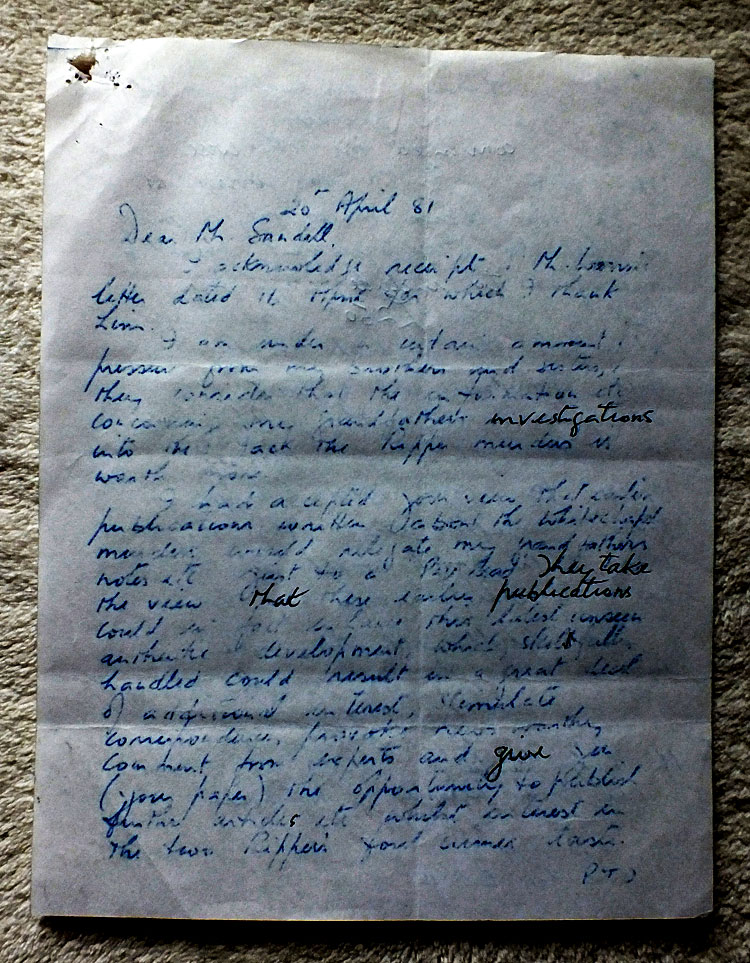 20th April 81
Dear Mr. Sandell,
I acknowledge receipt of Mr.
letter dated 11 April for which I thank
him.
I am under a certain amount of
pressure from my brothers and sisters,
they consider that the information etc
concerning my grandfather's investigations
into the Jack the Ripper murders is
worth more.
I had accepted your view that earlier
publications written about the Whitechapel
murders would relegate my grandfathers
notes etc to a They take
the view that these earlier publications
could in fact enhance this latest unseen
authentic development, which skilfully
handled could result in a great deal
of additional interest, stimulate
correspondence, provoke news worthy
comment from experts and give you
(your paper) the opportunity to publish
further articles etc whilst interest in
the two Ripper's foul crimes lasts.
P.T.O